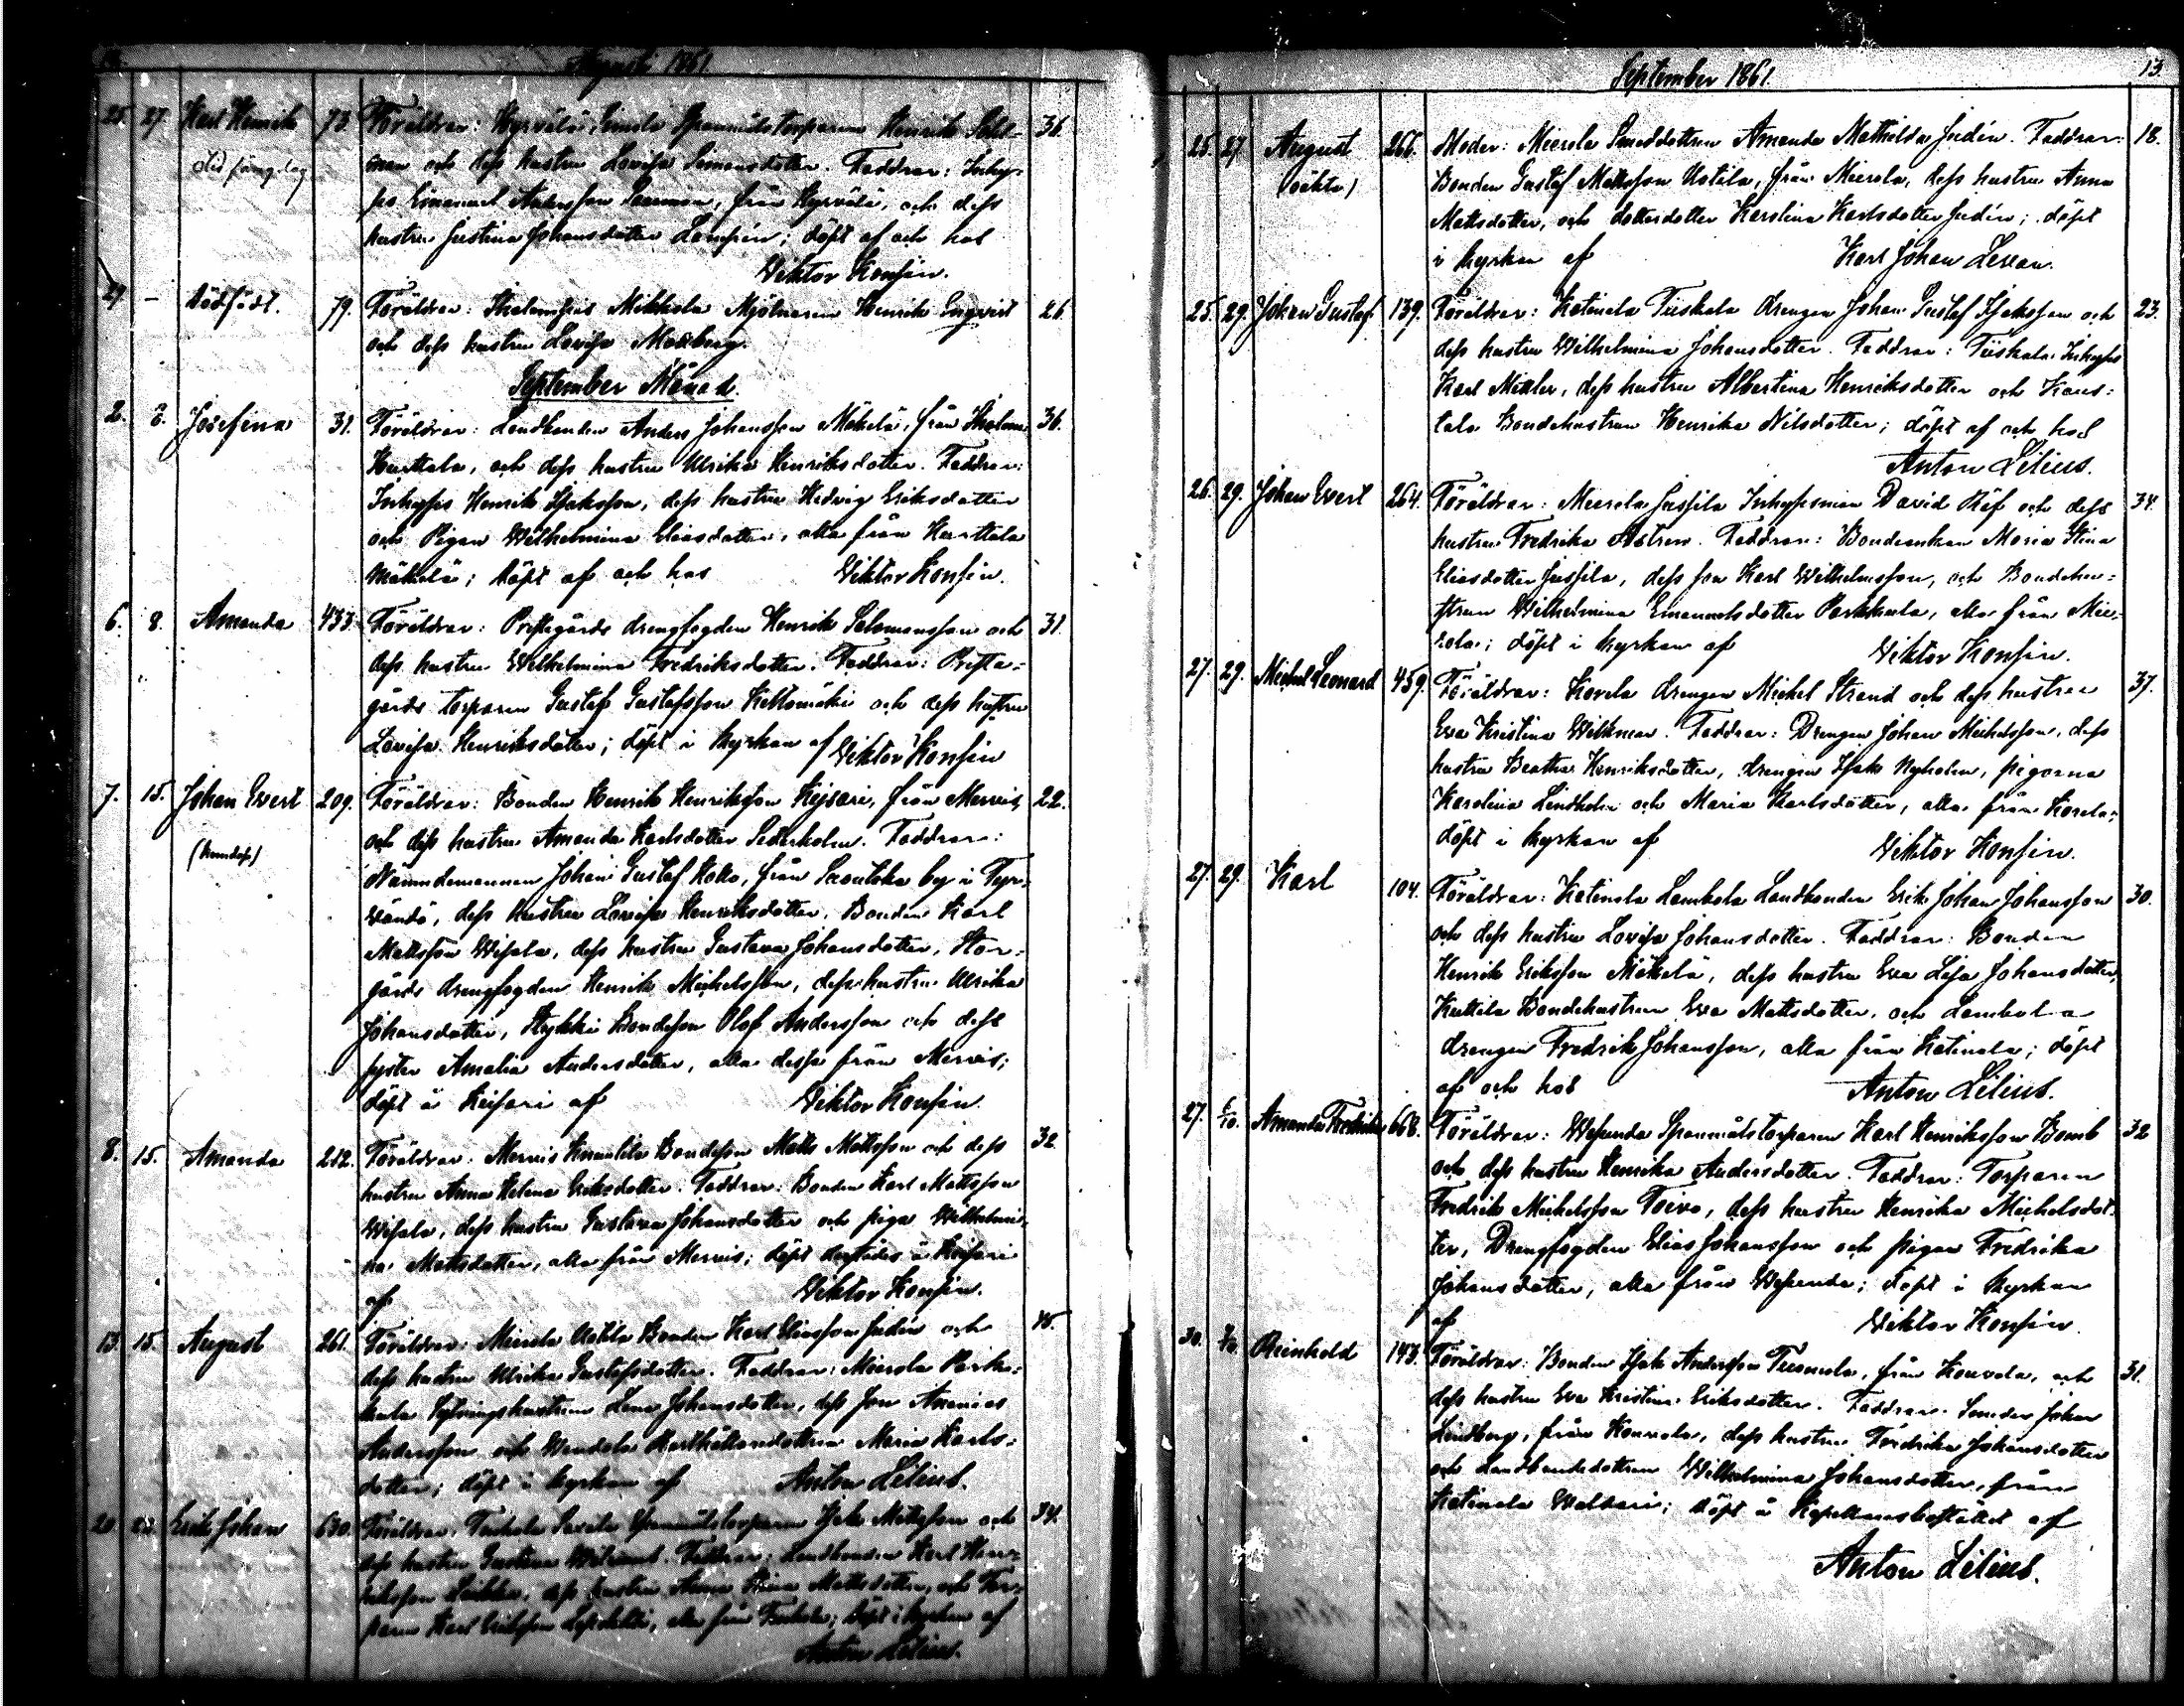 Augusti 1861.
25. 27. Karl Henrik 73. Föräldrar: Hyrvälä Spanmåls torparen Henrik 36.
man och dess hustru Lovisa Simonsdotter. Faddrar: Inhy-
ses Emanuel Andersson från Hyrvälä, och dess
hustru Justina Johansdotter Lampén; döpt af och hos
Viktor Konsin.
29 – Dödfödt. 79. Föräldrar: Mikkola Mjölnaren Henrik Engqvist 26.
och dess hustru Lovisa Moberg.
September Månad.
2. 8. Josefina 31. Föräldrar: Landbonden Anders Johansson Mäkelä, från 36.
Hurttala, och dess hustru Ulrika Henriksdotter. Faddrar:
Inhyses Henrik Isaksson, dess hustru Hedvig Eriksdotter
och Pigan Wilhelmina Eliasdotter, alla från Hurttala
Mäkelä; döpt af och hos Viktor Konsin.
6. 8. Amanda 433. Föräldrar: Prestgårds drengfogden Henrik Salomonsson och 31.
dess hustru Wilhelmina Fredriksdotter. Faddrar: Presta-
gårds torparen Gustaf Gustafsson Keltomäki och dess hustru
Lovisa Henriksdotter; döpt i kyrkan af Viktor Konsin
7. 15. Johan Evert 209. Föräldrar: Bonden Henrik Henriksson Keijsari, från Mervis, 22.
och dess hustru Amanda Karlsdotter Sederholm. Faddrar:
Nämndemannen Johan Gustaf från by i Tyr-
vändö, dess hustru Lovisa Henriksdotter, Bonden Karl
Mattsson Wisala, dess hustru Gustava Johansdotter, Stor-
gårds drengfogden Henrik Michelsson, dess hustru Ulrika
Johansdotter, Stykki Bondeson Olof Andersson och dess
syster Amalia Andersdotter, alla dessa från Mervis;
döpt å Keisari af Viktor Konsin.
8. 15. Amanda 212. Föräldrar: Mervis Bondeson Matts Mattsson och dess 32.
hustru Anna Helena Eriksdotter. Faddrar: Bonden Karl Mattsson
Wisala, dess hustru Gustava Johansdotter och piga Wilhelmi-
na Mattsdotter, alla från Mervis; döpt derstädes å Keisari
af Viktor Konsin.
13. 15. August 261. Föräldrar: Mierola Uotila Bonden Karl Eliasson Judén och
dess hustru Ulrika Gustafsdotter. Faddrar: Mierola Park-
kula Sytningshustrun Lena Johansdotter, dess son Ananias
Andersson och Maria Karls-
dotter; döpt i kyrkan af Anton Lilius.
Erik Johan 630. Föräldrar: Spanmålstorparen Isak Mattsson och 34.
dess hustru Gustava. Faddrar: Landbonden Karl Hen-
riksson, dess hustru Mattsdotter, och Tor-
paren Karl Eriksson, alla från; döpt i kyrkan af
Anton Lilius.
September 1861. 13.
25. 27. August 266. Moder: Mierola Smeddottren Amanda Mathilda Judén. Faddrar: 18.
(oäkta) Bonden Gustaf Mattsson Uotila, från Mierola, dess hustru Anna
Mattsdotter, och dotterdotter Karolina Karlsdotter Judén; döpt
i kyrkan af Karl Johan Levan.
25. 29. Johan Gustaf 139. Föräldrar: Katinala Tiiskala drengen Johan Gustaf Isaksson och 23.
dess hustru Wilhelmina Johansdotter. Faddrar: Tiiskala Inhyses
Karl Mixler, dess hustru Albertina Henriksdotter och Kans-
tala Bondehustrun Henrika Nilsdotter; döpt af och hos
Anton Lilius.
26. 29. Johan Evert 264. Föräldrar: Mierola Jussila Inhysesman David Räf och dess 34.
hustru Fredrika Aström. Faddrar: Bondeenkan Maria Stina
Eliasdotter Jussila, dess son Karl Wilhelmsson, och Bondehu-
strun Wilhelmina Emanuelsdotter Parkkula, alla från Mie-
rola; döpt i kyrkan af Viktor Konsin.
27. 29. Michel Leonard 459. Föräldrar: Karela drengen Michel Strand och dess hustru 37.
Eva Kristina Wilkman. Faddrar: Drengen Johan Michelsson, dess
hustru Beatha Henriksdotter, drengen Isak Nyholm, pigorna
Karolina Lindholm och Maria Karlsdotter, alla från Karela;
döpt i kyrkan af Viktor Konsin.
27. 29. Karl 104. Föräldrar: Katinala Lambola Landbonden Erik Johan Johansson 30.
och dess hustru Lovisa Johansdotter. Faddrar: Bonden
Henrik Eriksson Mäkelä, dess hustru Eva Lisa Johansdotter,
Kuttila Bondehustrun Eva Mattsdotter, och Lambola
drengen Fredrik Johansson, alla från Katinala; döpt
af och hos Anton Lilius.
27. 6/10. Amanda Fredrika 668. Föräldrar: Wesunda Spanmålstorparen Karl Henriksson Bomb 32
och dess hustru Henrika Andersdotter. Faddrar: Torparen
Fredrik Michelsson Toivo, dess hustru Henrika Michelsdot-
ter, Drengfogden Elias Johansson och pigan Fredrika
Johansdotter, alla från Wesunda; döpt i kyrkan
af Viktor Konsin.
30. Reinhold 143. Föräldrar: Bonden Isak Andersson Tuomola, från Konvola, och 31.
dess hustru Eva Kristina Eriksdotter. Faddrar: Smeden Johan
Lindberg, från Konvola, dess hustru Fredrika Johansdotter
och Landbondedottren Wilhelmina Johansdotter, från
Katinala Waldari; döpt å Kapellansbostället af
Anton Lilius.